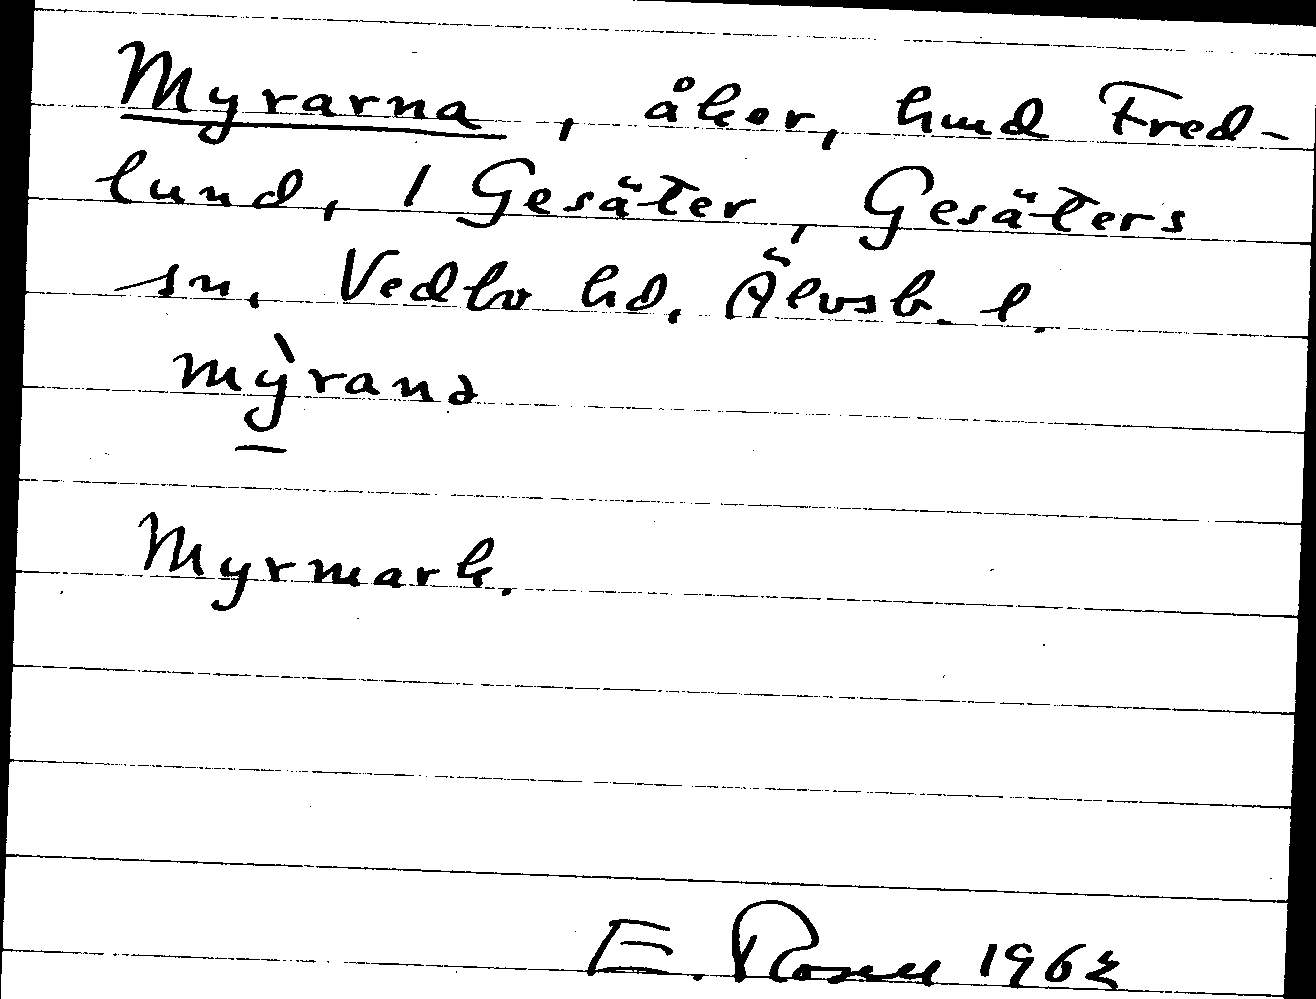 Myrarna, åker, hmd Fred-
lund, 1 Gesäter, Gesäters
sn, Vedbo hd, Älvsb. l.
mỳ̱rana
Myrmark.
E. Rosell 1962